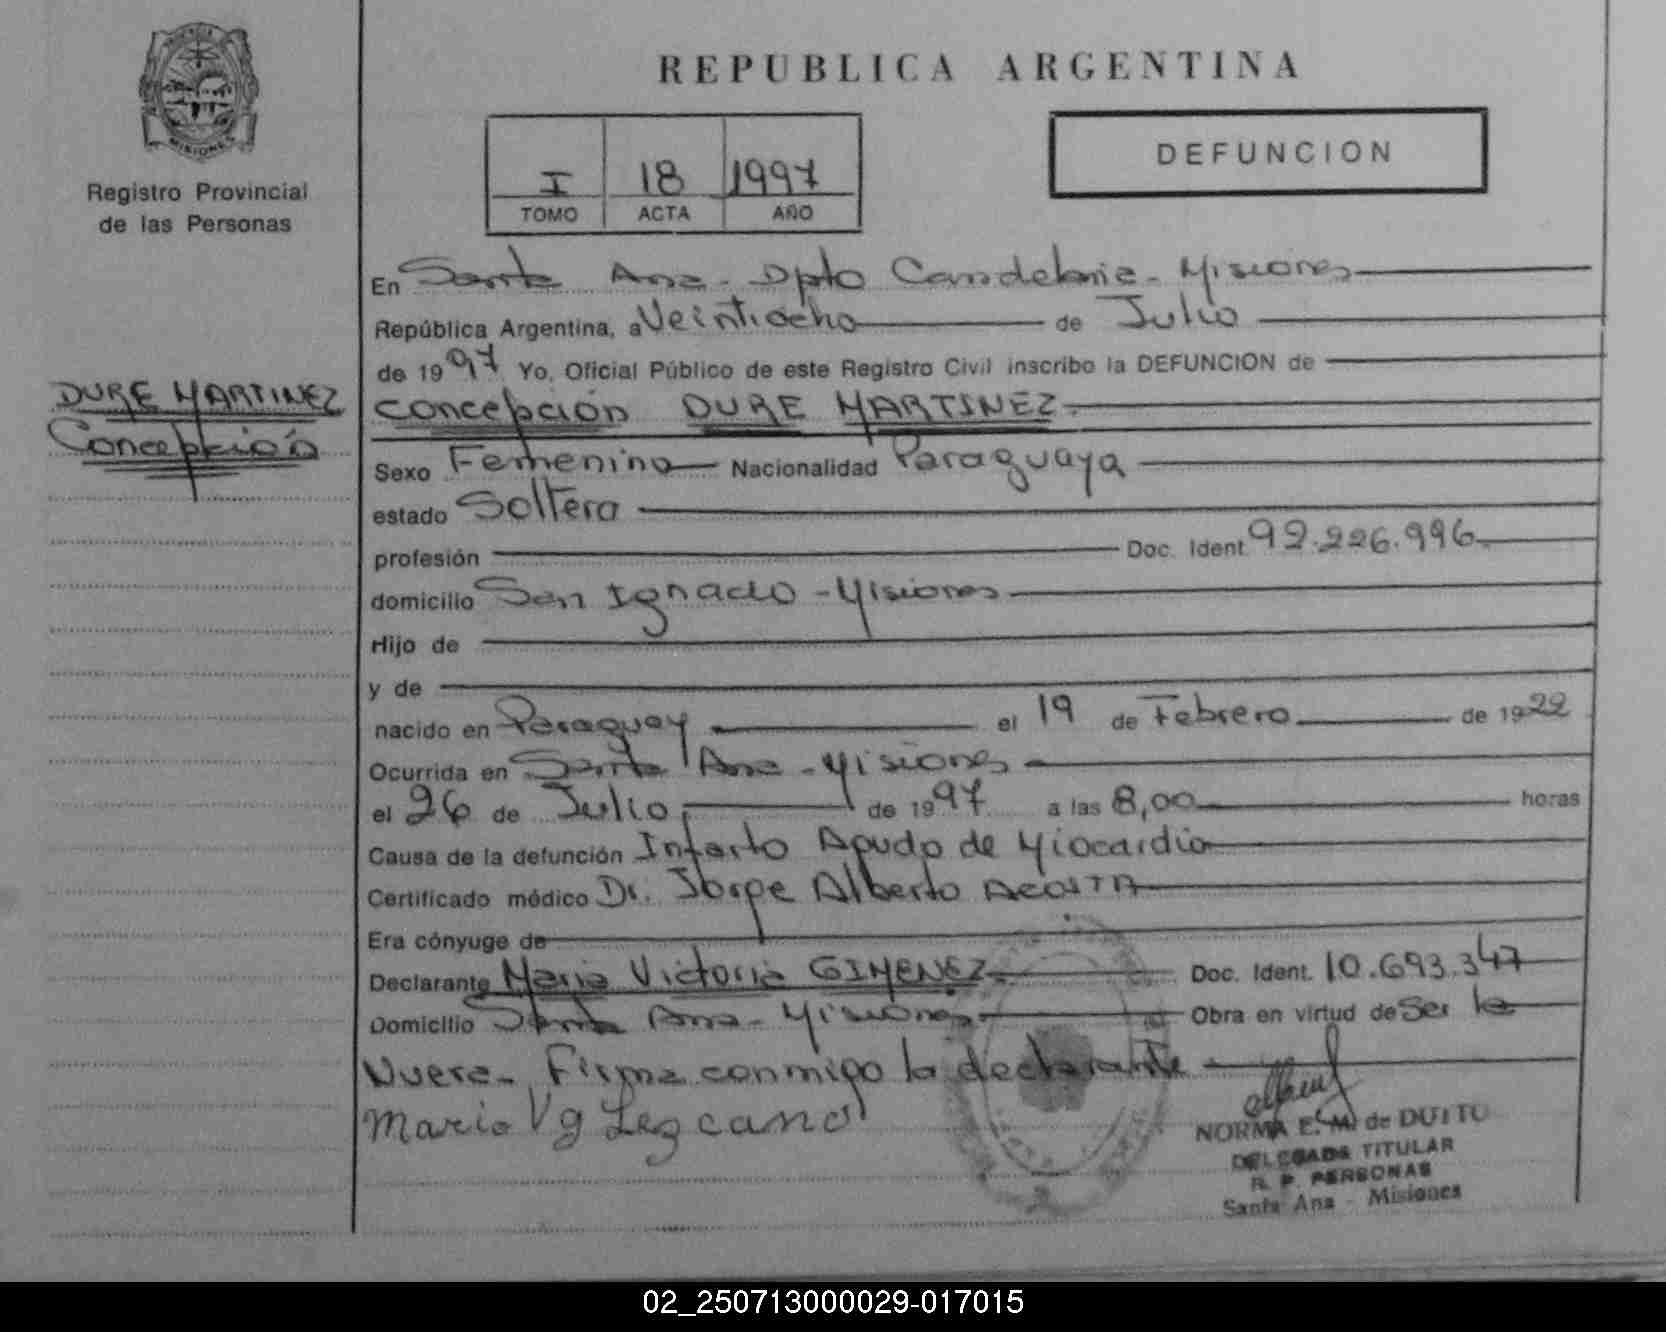 REPUBLICA ARGENTINA
MISIONES
Registro Provincial
de las Personas
I 18 1997
TOMO ACTA AÑO
DEFUNCION
En Santa Ana - Dpto Candelaria - Misiones
República Argentina, a Veintiocho de Julio
de 1997 Yo, Oficial Público de este Registro Civil inscribo la DEFUNCION de
DURE MARTINEZ
Concepción
Concepción DURE MARTINEZ
Sexo Femenino Nacionalidad Paraguaya
estado Soltera
profesión Doc. Ident. 92.226.996
domicilio San Ignacio - Misiones
Hijo de
y de
nacido en Paraguay el 19 de Febrero de 1922
Ocurrida en Santa Ana - Misiones
el 26 de Julio de 1997 a las 8,00 horas
Causa de la defunción Infarto Agudo de Miocardio
Certificado médico Dr. Jorge Alberto ACOSTA
Era cónyuge de
Declarante Maria Victoria GIMENEZ Doc. Ident. 10.693.347
Domicilio Santa Ana - Misiones Obra en virtud de Ser la
Nuera - Firma conmigo la declarante
Maria Vg Lezcano
NORMA E. M. de DUTTO
DELEGADA TITULAR
R. P. PERSONAS
Santa Ana - Misiones
02_250713000029-017015